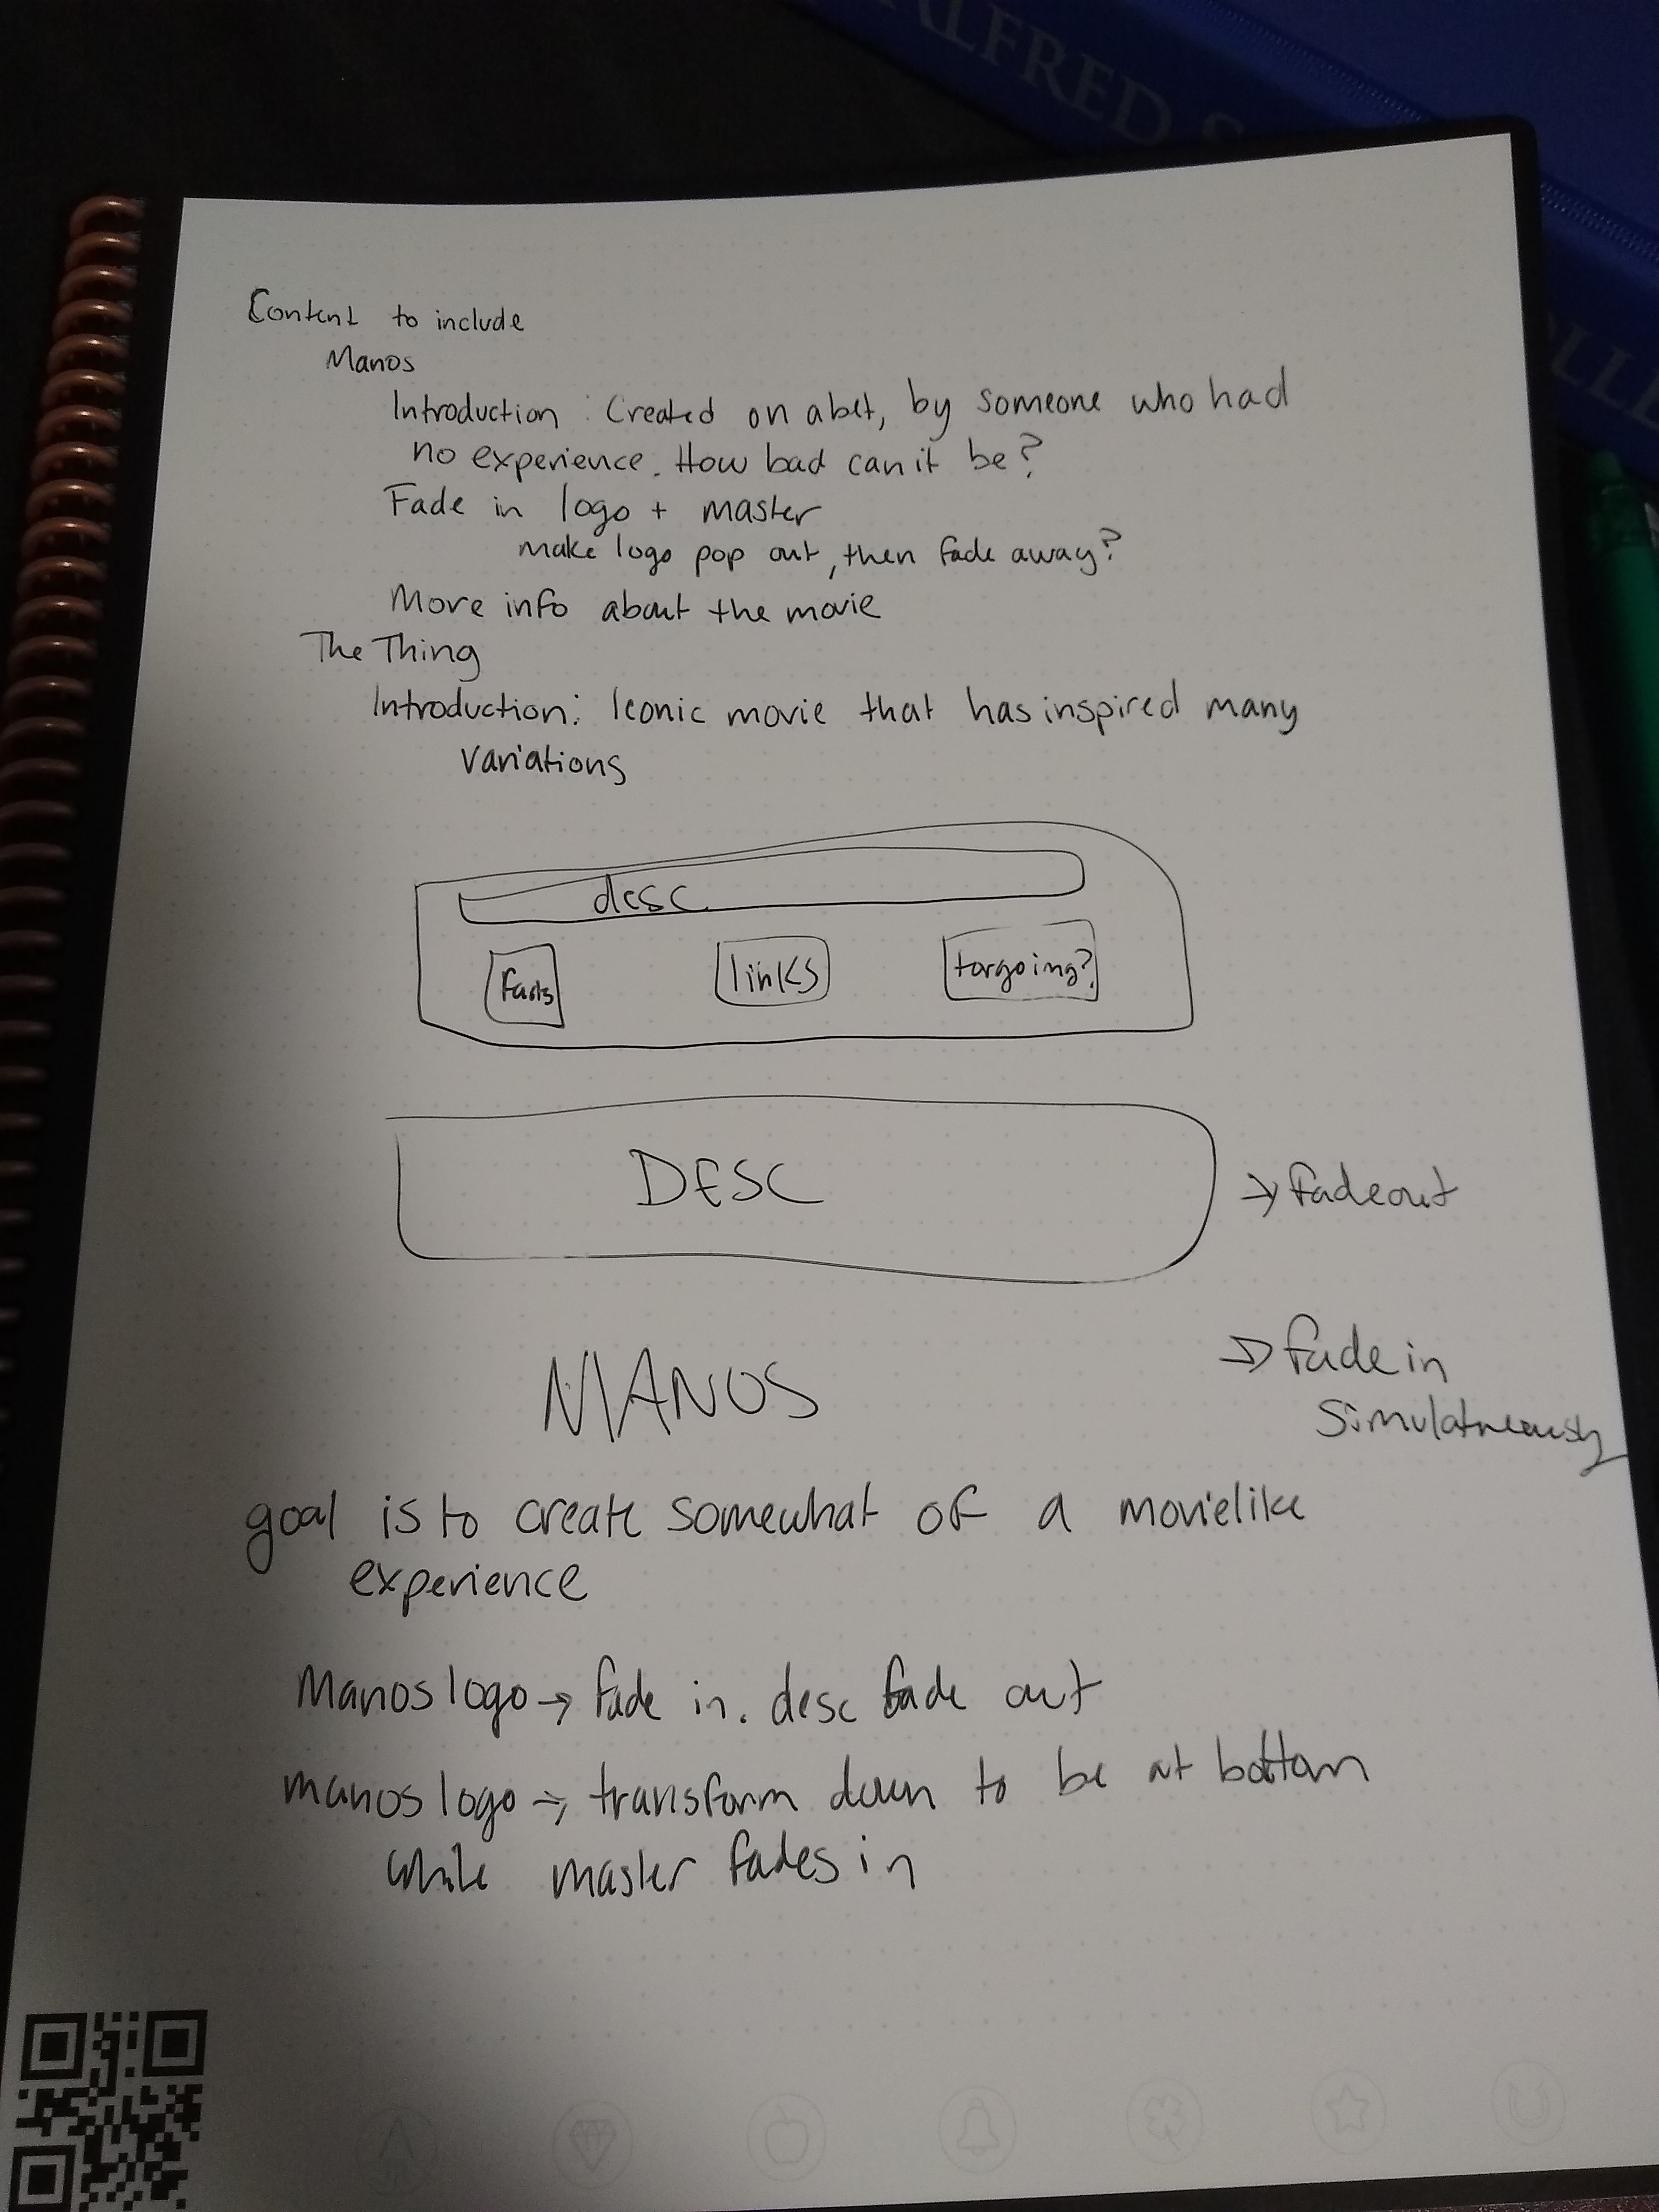 ALFRED S
OLLE
Content to include
Manos
Introduction: Created on a bet, by someone who had
no experience. How bad can it be?
Fade in logo + master
make logo pop out, then fade away?
More info about the movie
The Thing
Introduction: Iconic movie that has inspired many
variations
desc
facts
links
torgoing?
DESC
→ fadeout
MANOS
→ fade in
simulatneously
goal is to create somewhat of a movielike
experience
Manos logo → fade in. desc fade out
manos logo → transform down to be at bottom
while master fades in